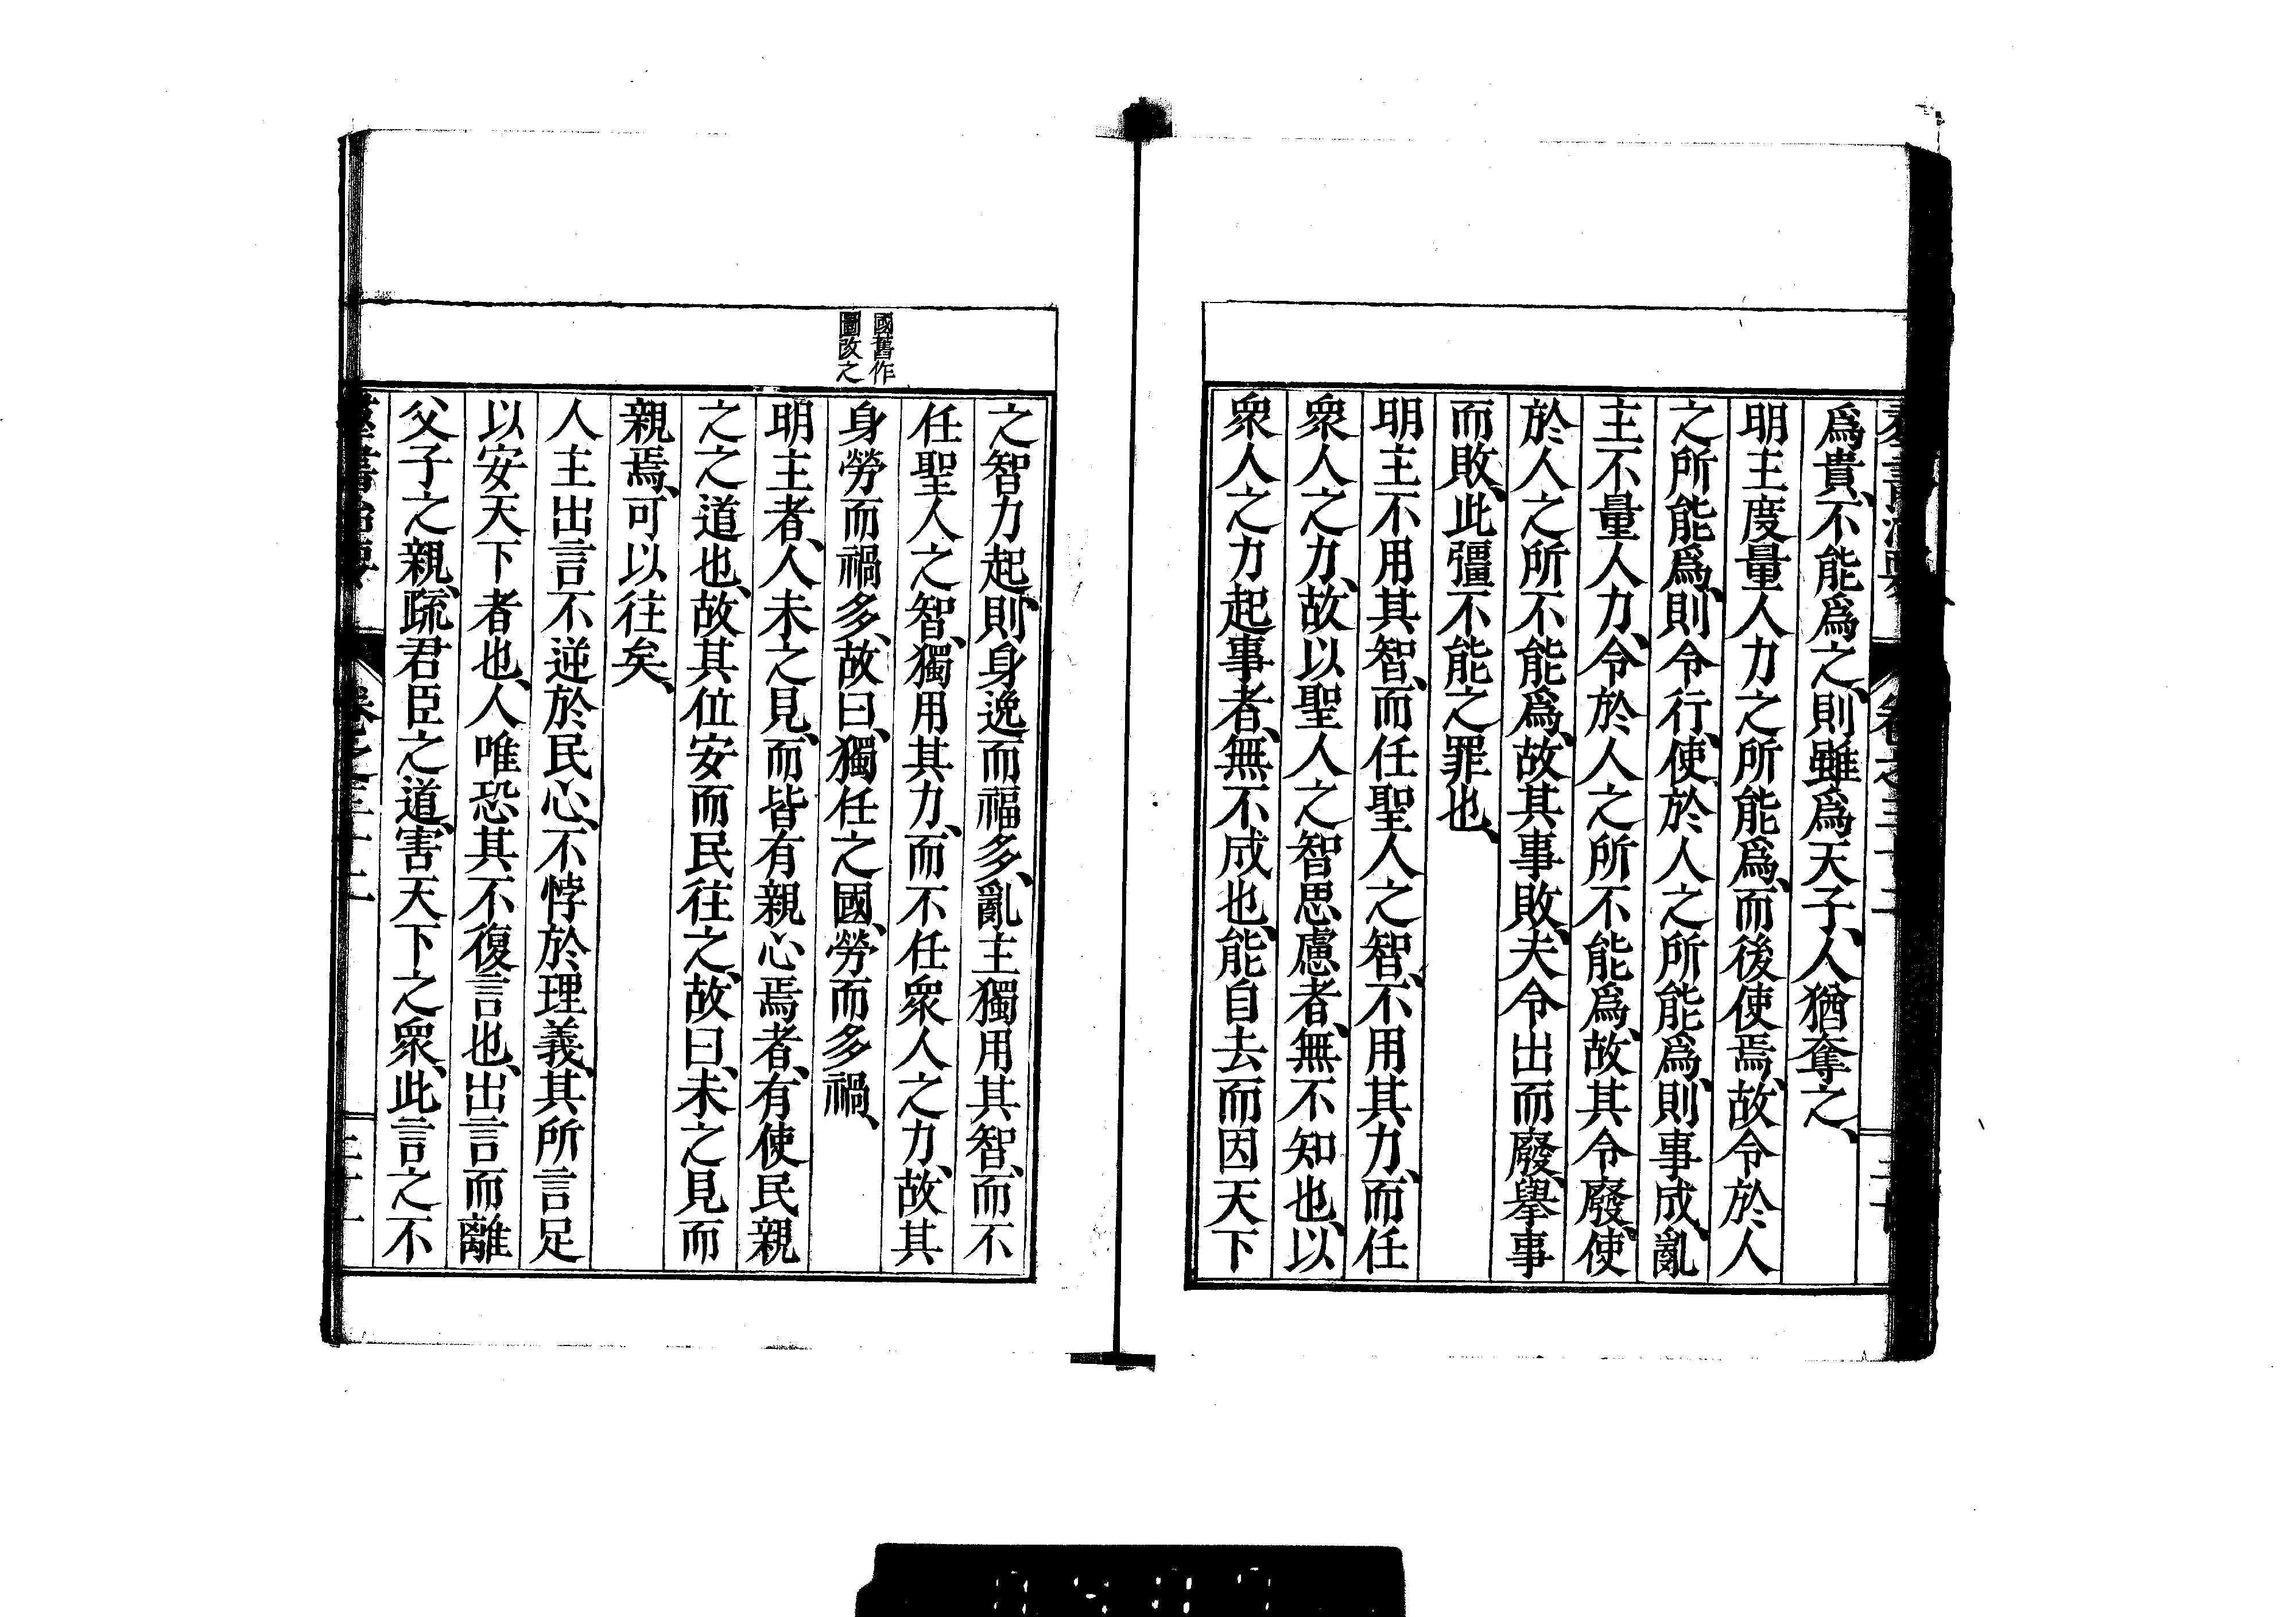 爲貴、不能爲之、則雖爲天子、人猶奪之、
明主度量人力之所能爲、而後使焉、故令於人
之所能爲、則令行、使於人之所能爲、則事成、亂
主不量人力、令於人之所不能爲、故其令廢、使
於人之所不能爲、故其事敗、夫令出而廢、舉事
而敗、此彊不能之罪也、
明主不用其智、而任聖人之智、不用其力、而任
衆人之力、故以聖人之智思慮者、無不知也、以
衆人之力起事者、無不成也、能自去而因天下
國舊作
圖改之
之智力起、則身逸而福多、亂主獨用其智、而不
任聖人之智、獨用其力、而不任衆人之力、故其
身勞而禍多、故曰、獨任之國、勞而多禍、
明主者、人未之見、而皆有親心焉者、有使民親
之之道也、故其位安而民往之、故曰、未之見而
親焉、可以往矣、
人主出言不逆於民心、不悖於理義、其所言足
以安天下者也、人唯恐其不復言也、出言而離
父子之親、疏君臣之道、害天下之衆、此言之不